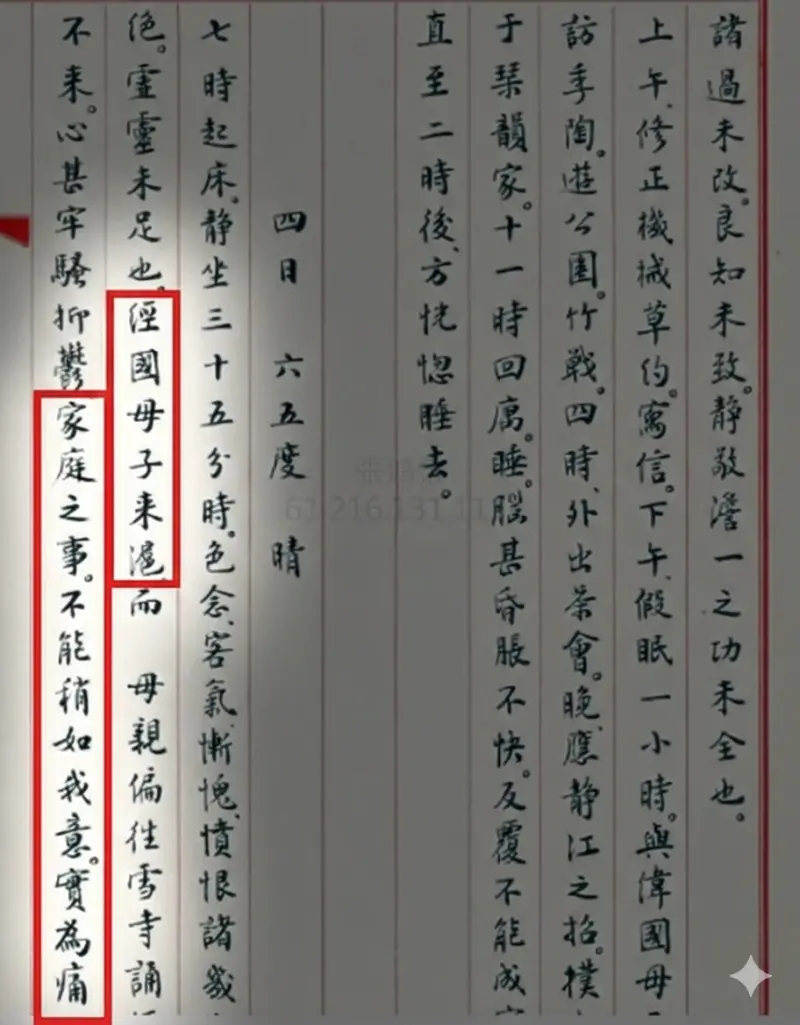 諸過未改。良知未致。靜敬澹一之功未全也。
上午、修正機械草約。寫信。下午、假眠一小時。與偉國母
訪季陶。遊公園。竹戰。四時、外出茶會。晚、應靜江之招。撲
于琹韻家。十一時回寓。睡。腦甚昏脹不快。反覆不能成
直至二時後、方恍惚睡去。
四日 六五度 晴
七時起床。靜坐三十五分時。色念、客氣、慚愧、憤恨諸幾
絕。靈靈未足也。經國母子來滬、而 母親偏往雪寺誦
不來。心甚牢騷抑鬱家庭之事。不能稍如我意。實為痛
張
61.216.131.11